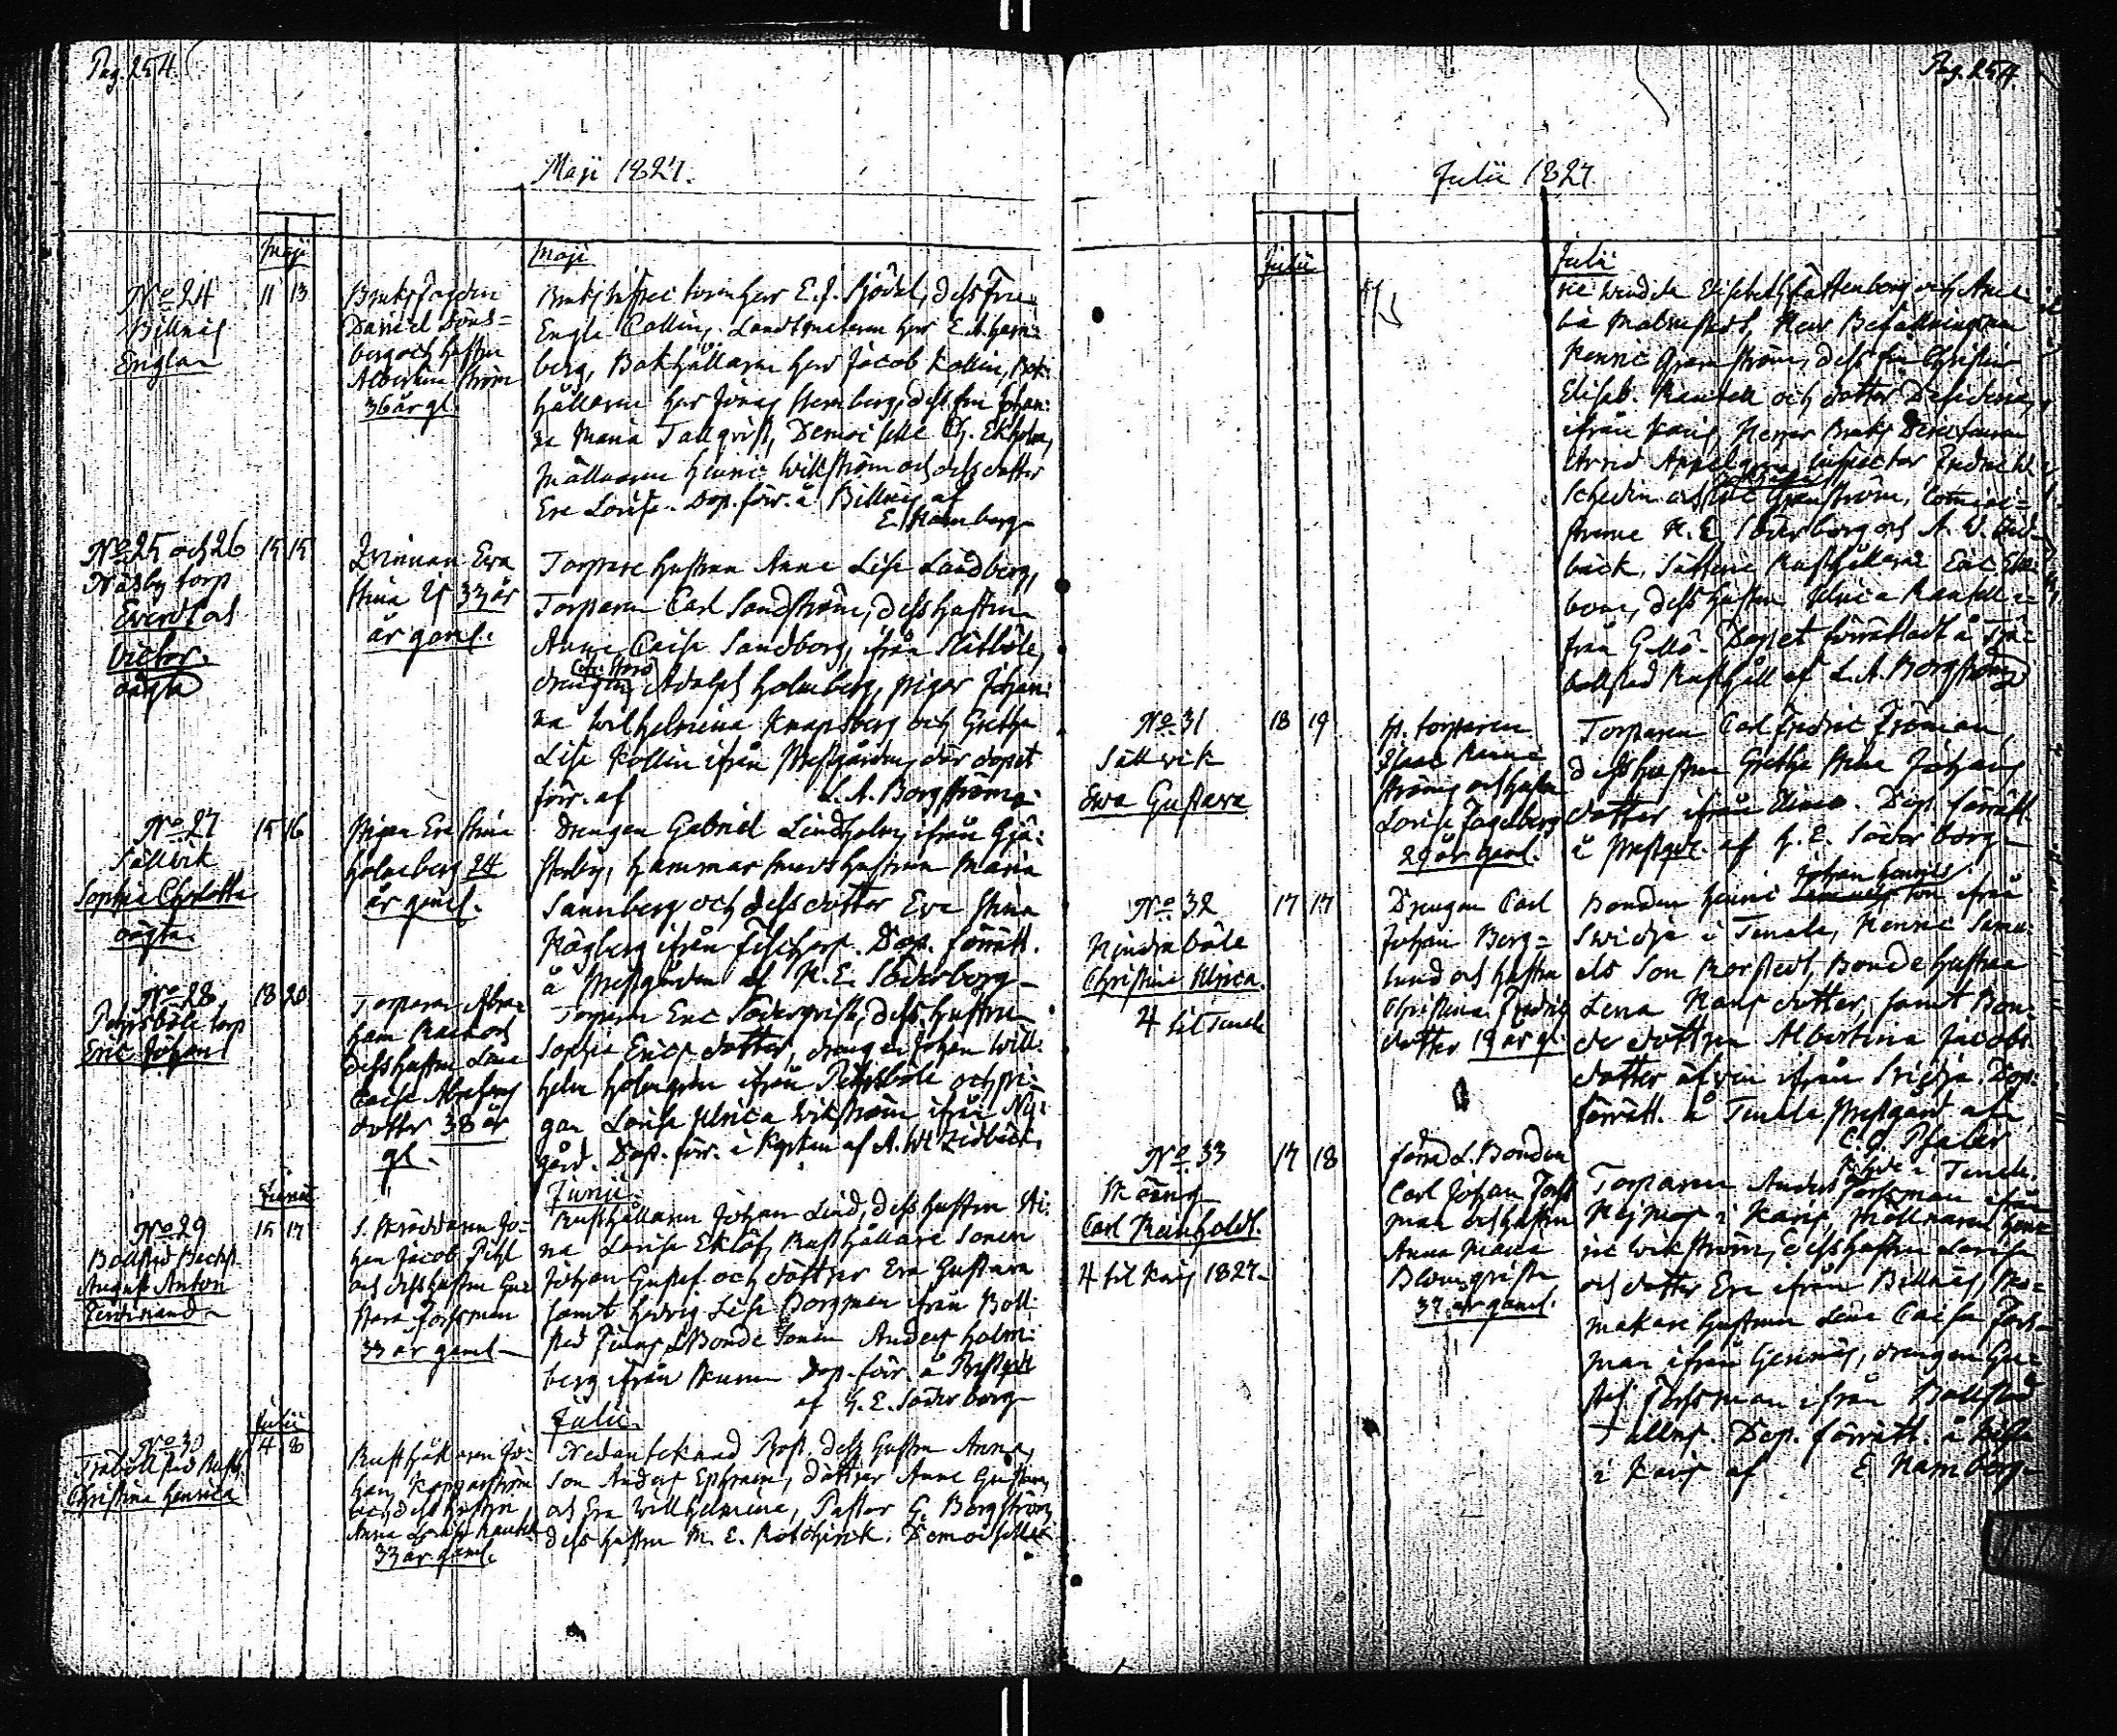 Pag. 254.
Maji 1827.
Maji
Maji
No 24
Billnäs
Englan
11 13
Bruks
Daniel
berg och hustru
Albertina Ström
36 år gl.
Bruks herr E. J. Sjödel, dess fru
Engla Collin. herr E. A. Ham=
berg, Bokhållaren herr Jacob Kollin, Bok=
hållaren herr Jonas Stenberg, dess fru Johan=
na Maria Tallqvist, Demoiselle Ch. Ekholm,
Möllnaren Henric Wikström och dess dotter
Eva Lovisa. Dop. förr. å Billnäs af
E. Hamberg
No 25 och 26
Näsby torp
Everd och
Victor.
oägta
15 15
Qvinnan Eva
Stina 33 år
år gaml.
Torpare hustrun Anna Lisa Landberg,
Torparen Carl Sandström, dess hustru
Anna Caisa Sandborg, ifrån Slitböle,
drengen Adolph Holmberg, pigor Johan=
na Wilhelmina Knapsberg och Gretha
Lisa Kollin ifrån Prestgården, där dopet
förr. af L. A. Borgström
No 27
Sällvik
Sophia Charlotta
oägta.
15 16
Pigan Eva Stina
Holmberg 24
år gaml.
Drengen Gabriel Lindholm ifrån Gjä=
sterby, Hammarsmeds hustrun Maria
Sannberg och dess dotter Eva Stina
Kägberg ifrån Dop. förrätt.
å Prestgården af H. E. Söderborg
No 28
Petrsböle torp
Eric Johan
18 20
Torparen Abra
ham och
dess hustru Lena
Caisa Abrahams
dotter 38 år
gl.
Torparen Eric Söderqvist, dess hustru
Sophia Ericsdotter, drengen Johan Will=
helm Holmgren ifrån Petrsböle och pi=
gan Lovisa Ulrica Wikström ifrån Ny=
gård. Dop. förr. i Kyrkan af A. W. Lidbäck.
Junii
Junii.
No 29
Bollstad
August Anton
Ferdinand
15 17
S. Skräddaren Jo=
han Jacob Pihl
och dess hustru Gus
tava Forssman
33 år gaml
Rusthållaren Johan Lind, dess hustru Sti=
na Lovisa Eklöf, Rusthållare Sonen
Johan Gustaf och döttrar Eva Gustava
samt Hedvig Lisa Borgman ifrån Boll=
stad Bonde Sonen Anders Holm=
berg ifrån Skuru Dop. förr. å Prestgdn
af H. E. Söderborg
Julii
Julii.
No 30
Träbollstad Rusth.
Christina Henrica
4 8
Rusthållaren Jo=
han Kopparström
och dess hustru
Anna Lovisa Rantell
33 år gaml.
dess hustru Anna,
Son Anders Ephraim, döttrar Anna Gustava,
och Eva Willhelmina, Pastor G. Borgström,
dess hustru M. E. Rotchirck. Demoiseller
Pag. 254.
Julii 1827
Julii
Julii
Elisabeth Cattenborg och Ama=
lia Malmstedt, Herr Befallningsman
Henric Granström, dess fru Christina
Elisab. Rantell och dotter Desideria,
ifrån Karis, Herrar Bruks
Arvid Appelgren, Inspector Fredric W.
Schedin och Granström,
H. E. Söderborg och A. W. Lid=
bäck, Rusthållaren Eric Ek=
bom, dess hustru Ulrica Rantell i=
från Gellö. Dopet förrättadt å Trä=
bollstad Rusthåll af L. A. Borgström
No 31
Sällvik
Eva Gustava
18 19
H. torparen
Isaac
ström och hustru
Lovisa Fagelberg
29 år gaml.
Torparen Carl Fredric Fröman,
dess hustru Gretha Stina Johans
dotter ifrån Elimo. Dop. förrätt.
å Prestgdn af H. E. Söderborg
No 32
Kindraböle
Christina Ulrica.
4 til Tenala
17 17
Drengen Carl
Johan Berg=
lund och hustru
Christina Fredrics
dotter 19 år g.
Johan Henrics
Bonden Henric son ifrån
Svidja i Tenala, Henric Samu=
els Son Borstedt, Bonde hustrun
Lena Hansdotter, samt Bon=
de dottren Albertina Jacobs
dotter äfven ifrån Svidja. Dop.
förrätt. å Tenala Prestgård af
C. G. Pfaler
i Tenala.
No 33
Skåång
Carl Reinholdt.
4 til Karis 1827
17 18
förra L. Bonden
Carl Johan Forss
man och hustru
Anna Maria
Blomqvist
37 år gaml.
Torparen Anders Forssman ifrån
Hejmos i Karis, Möllnaren Hen=
ric Wikström, dess hustru Lovisa
och dotter Eva ifrån Billnäs, Sko=
makare hustrun Lena Caisa Forss=
man ifrån Gennäs, drengen Gus=
taf Forssman ifrån Bollstad
Tallnäs. Dop. förrätt. å
i Karis af E. Hamberg